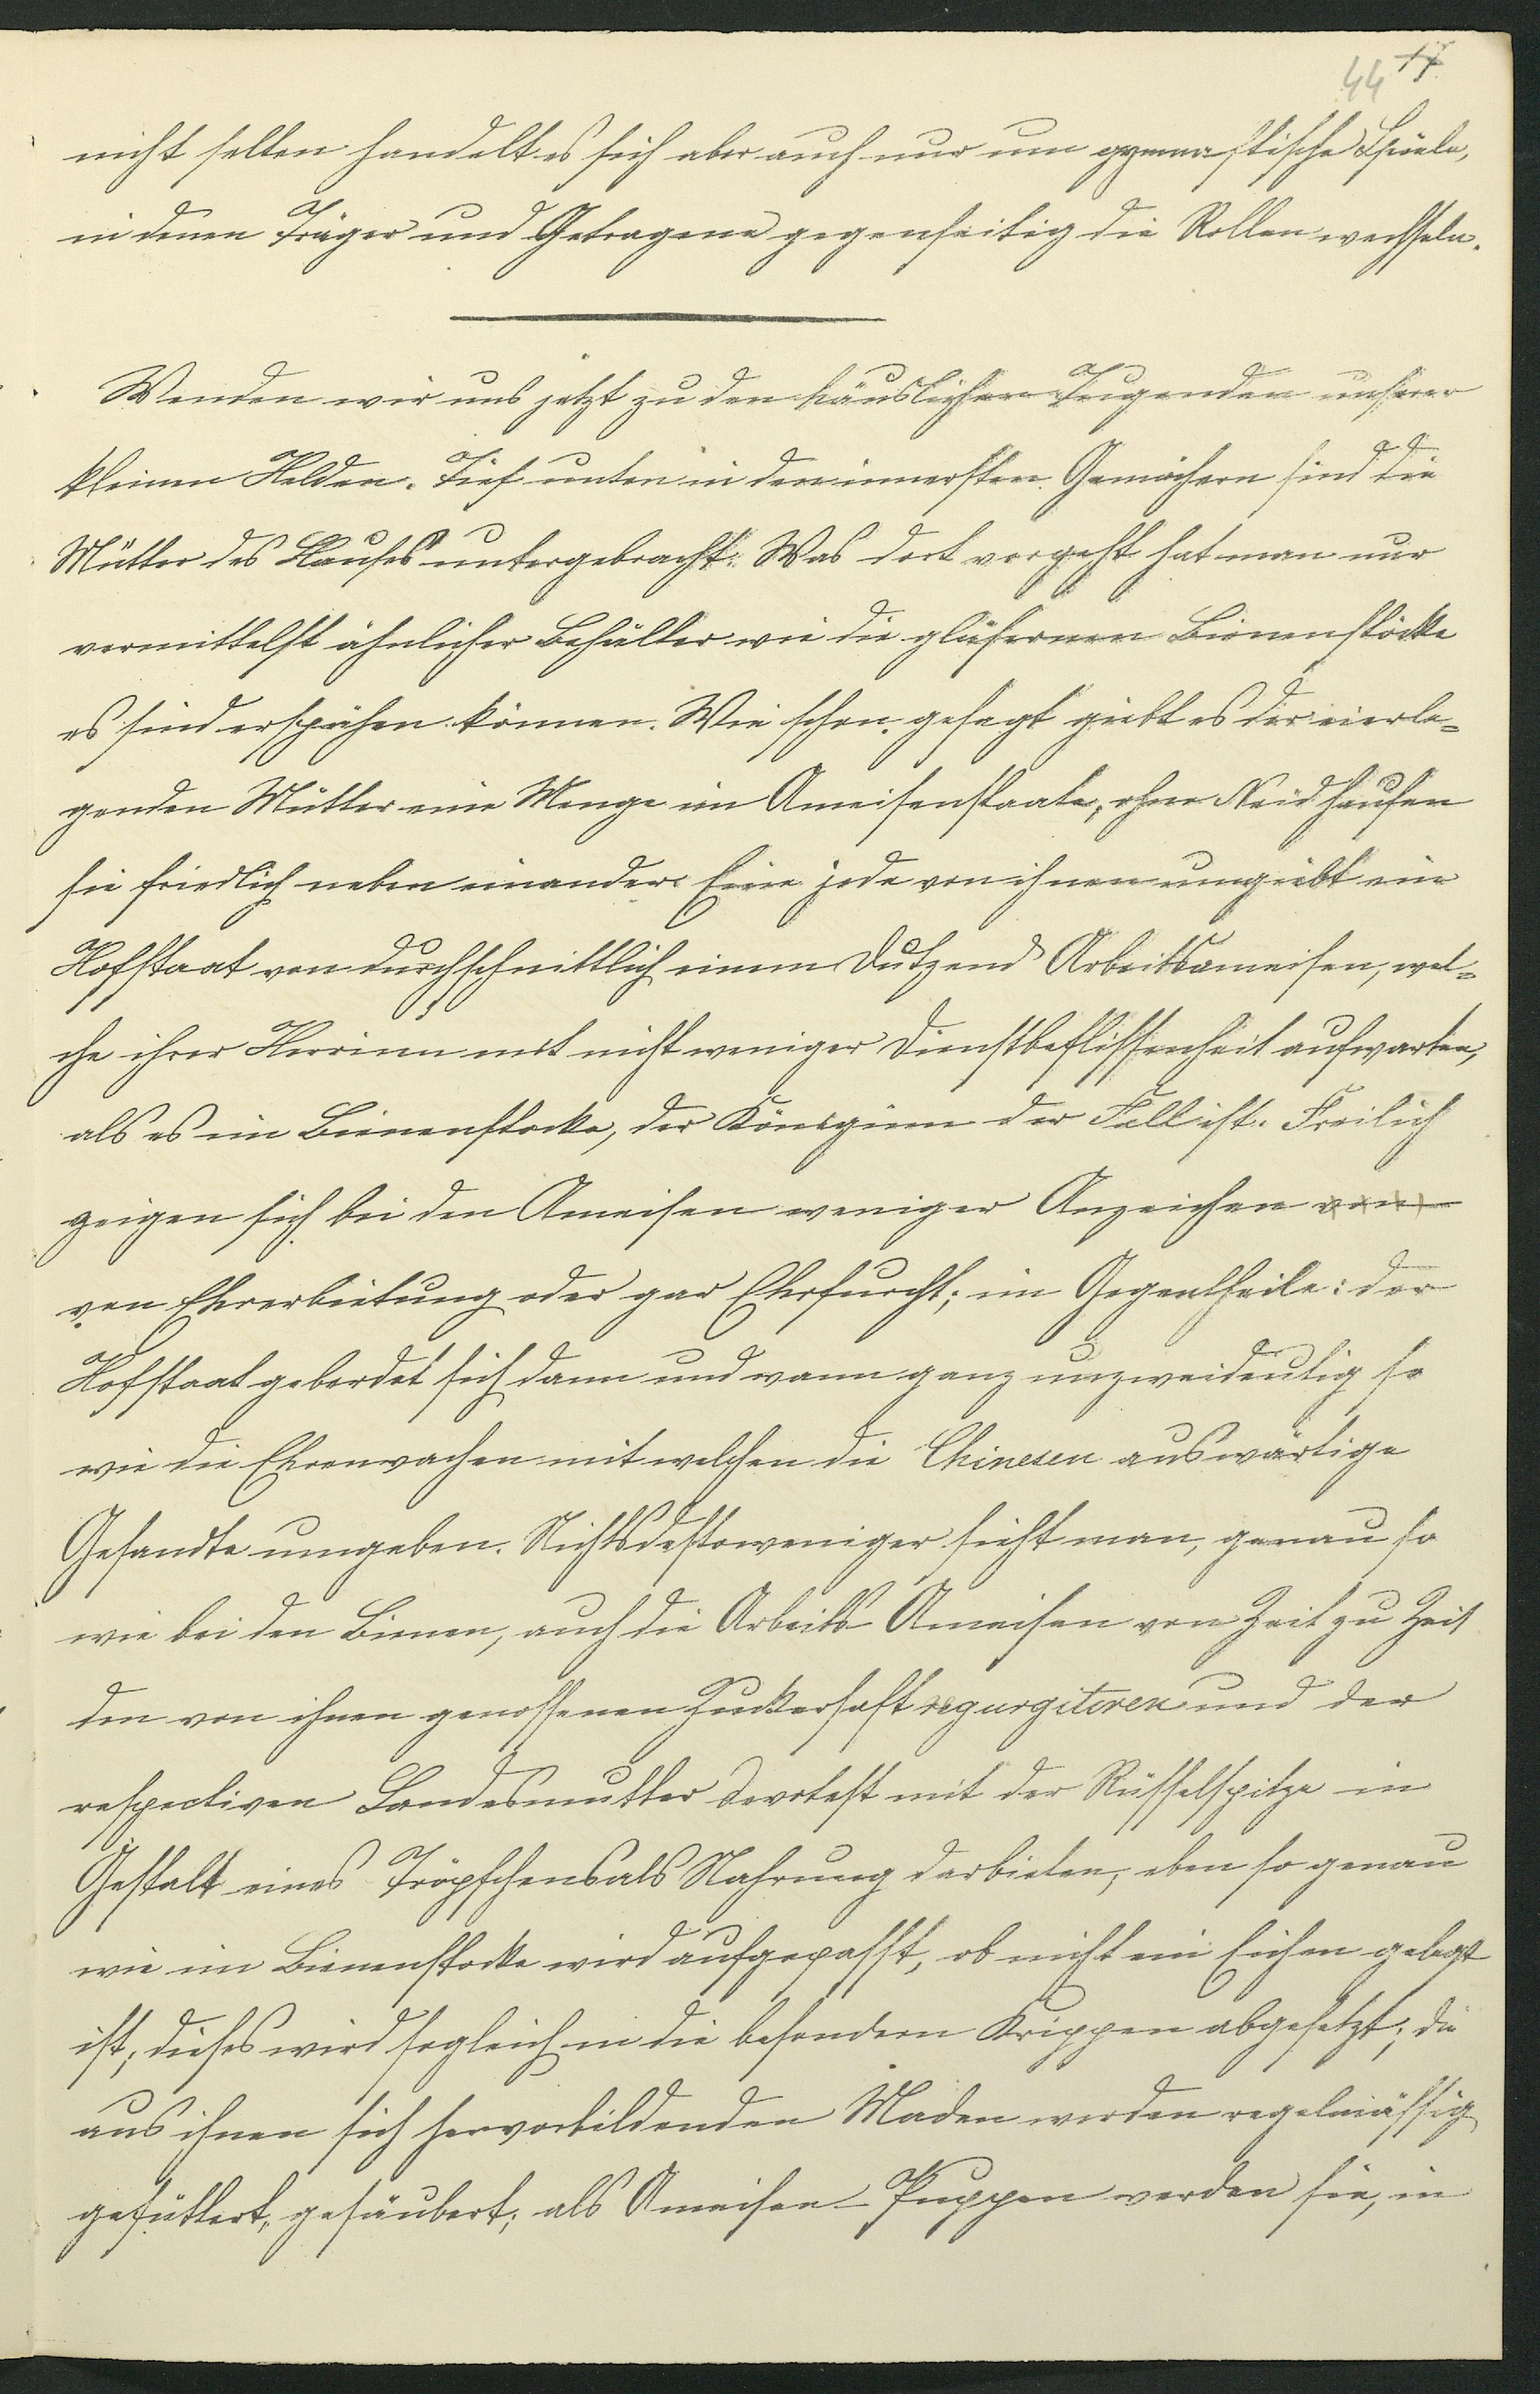 44 17
nicht selten handelt es sich aber auch nur um gymnastische Spiele,
in denen Träger und Getragene gegenseitig die Rollen wechseln.
Wenden wir uns jetzt zu den häuslichen Tugenden unserer
kleinen Helden. Tief unten in den innersten Gemächern sind die
Mütter des Hauses untergebracht. Was dort vorgeht hat man nur
vermittelst ähnlicher Behälter wie die gläsernen Bienenstöcke
es sind erspähen können. Wie schon gesagt giebt es der eierle-
genden Mütter eine Menge im Ameisenstaate, ohne Neid hausen
sie friedlich neben einander. Eine jede von ihnen umgiebt ein
Hofstaat von durchschnittlich einem Dutzend Arbeitsameisen, wel-
che ihrer Herrinn mit nicht weniger Dienstbeflissenheit aufwarten,
als es im Bienenstocke, der Königinn der Fall ist. Freilich
zeigen sich bei den Ameisen weniger Anzeichen von
von Ehrerbietung oder gar Ehrfurcht; im Gegentheile: der
Hofstaat geberdet sich dann und wann ganz unzweideutig so
wie die Ehrenwachen mit welchen die Chinesen auswärtige
Gesandte umgeben. Nichtsdestoweniger sieht man, genau so
wie bei den Bienen, auch die Arbeits-Ameisen von Zeit zu Zeit
den von ihnen genossenen Zuckersaft regurgitiren und der
respectiven Landesmutter devotest mit der Rüsselspitze in
Gestalt eines Tröpfchens als Nahrung darbieten; eben so genau
wie im Bienenstocke wird aufgepasst, ob nicht ein Eichen gelegt
ist; dieses wird sogleich in die besondern Krippen abgesetzt; die
aus ihnen sich hervorbildenden Maden werden regelmässig
gefüttert, gesäubert; als Ameisen-Puppen werden sie, in